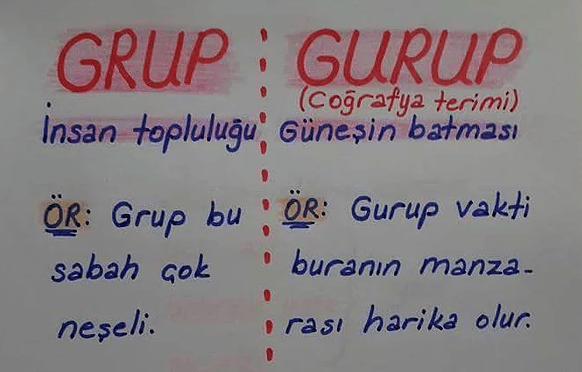 GRUP
İnsan topluluğu
ÖR: Grup bu
sabah çok
neşeli.
GURUP
(Coğrafya terimi)
Güneşin batması
ÖR: Gurup vakti
buranın manza-
rası harika olur.